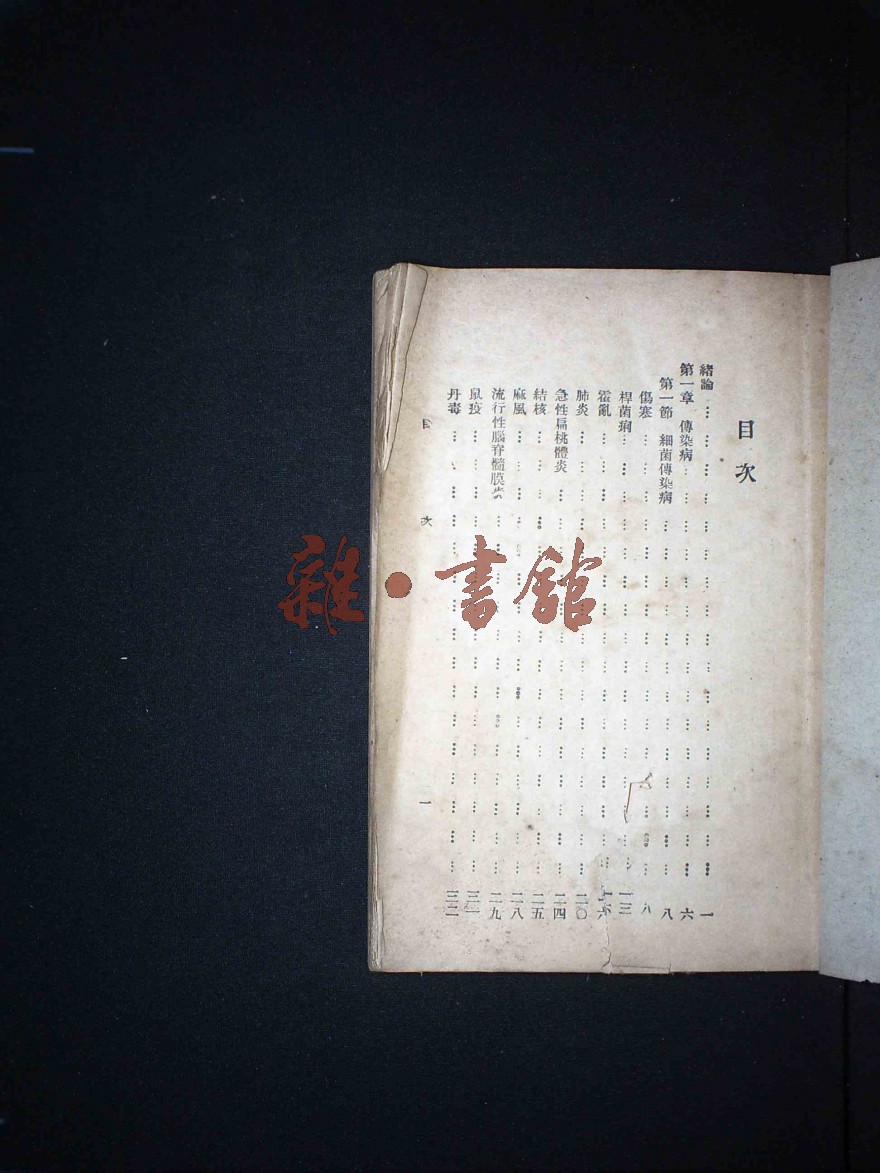 目次
緒論……一
第一章 傳染病……六
第一節 細菌傳染病……八
傷寒……八
桿菌痢……一三
霍亂……一六
肺炎……二〇
急性扁桃體炎……二四
結核……二五
麻風……二八
流行性腦脊髓膜炎……二九
鼠疫……三一
丹毒……三二
目次 一
雜·書館